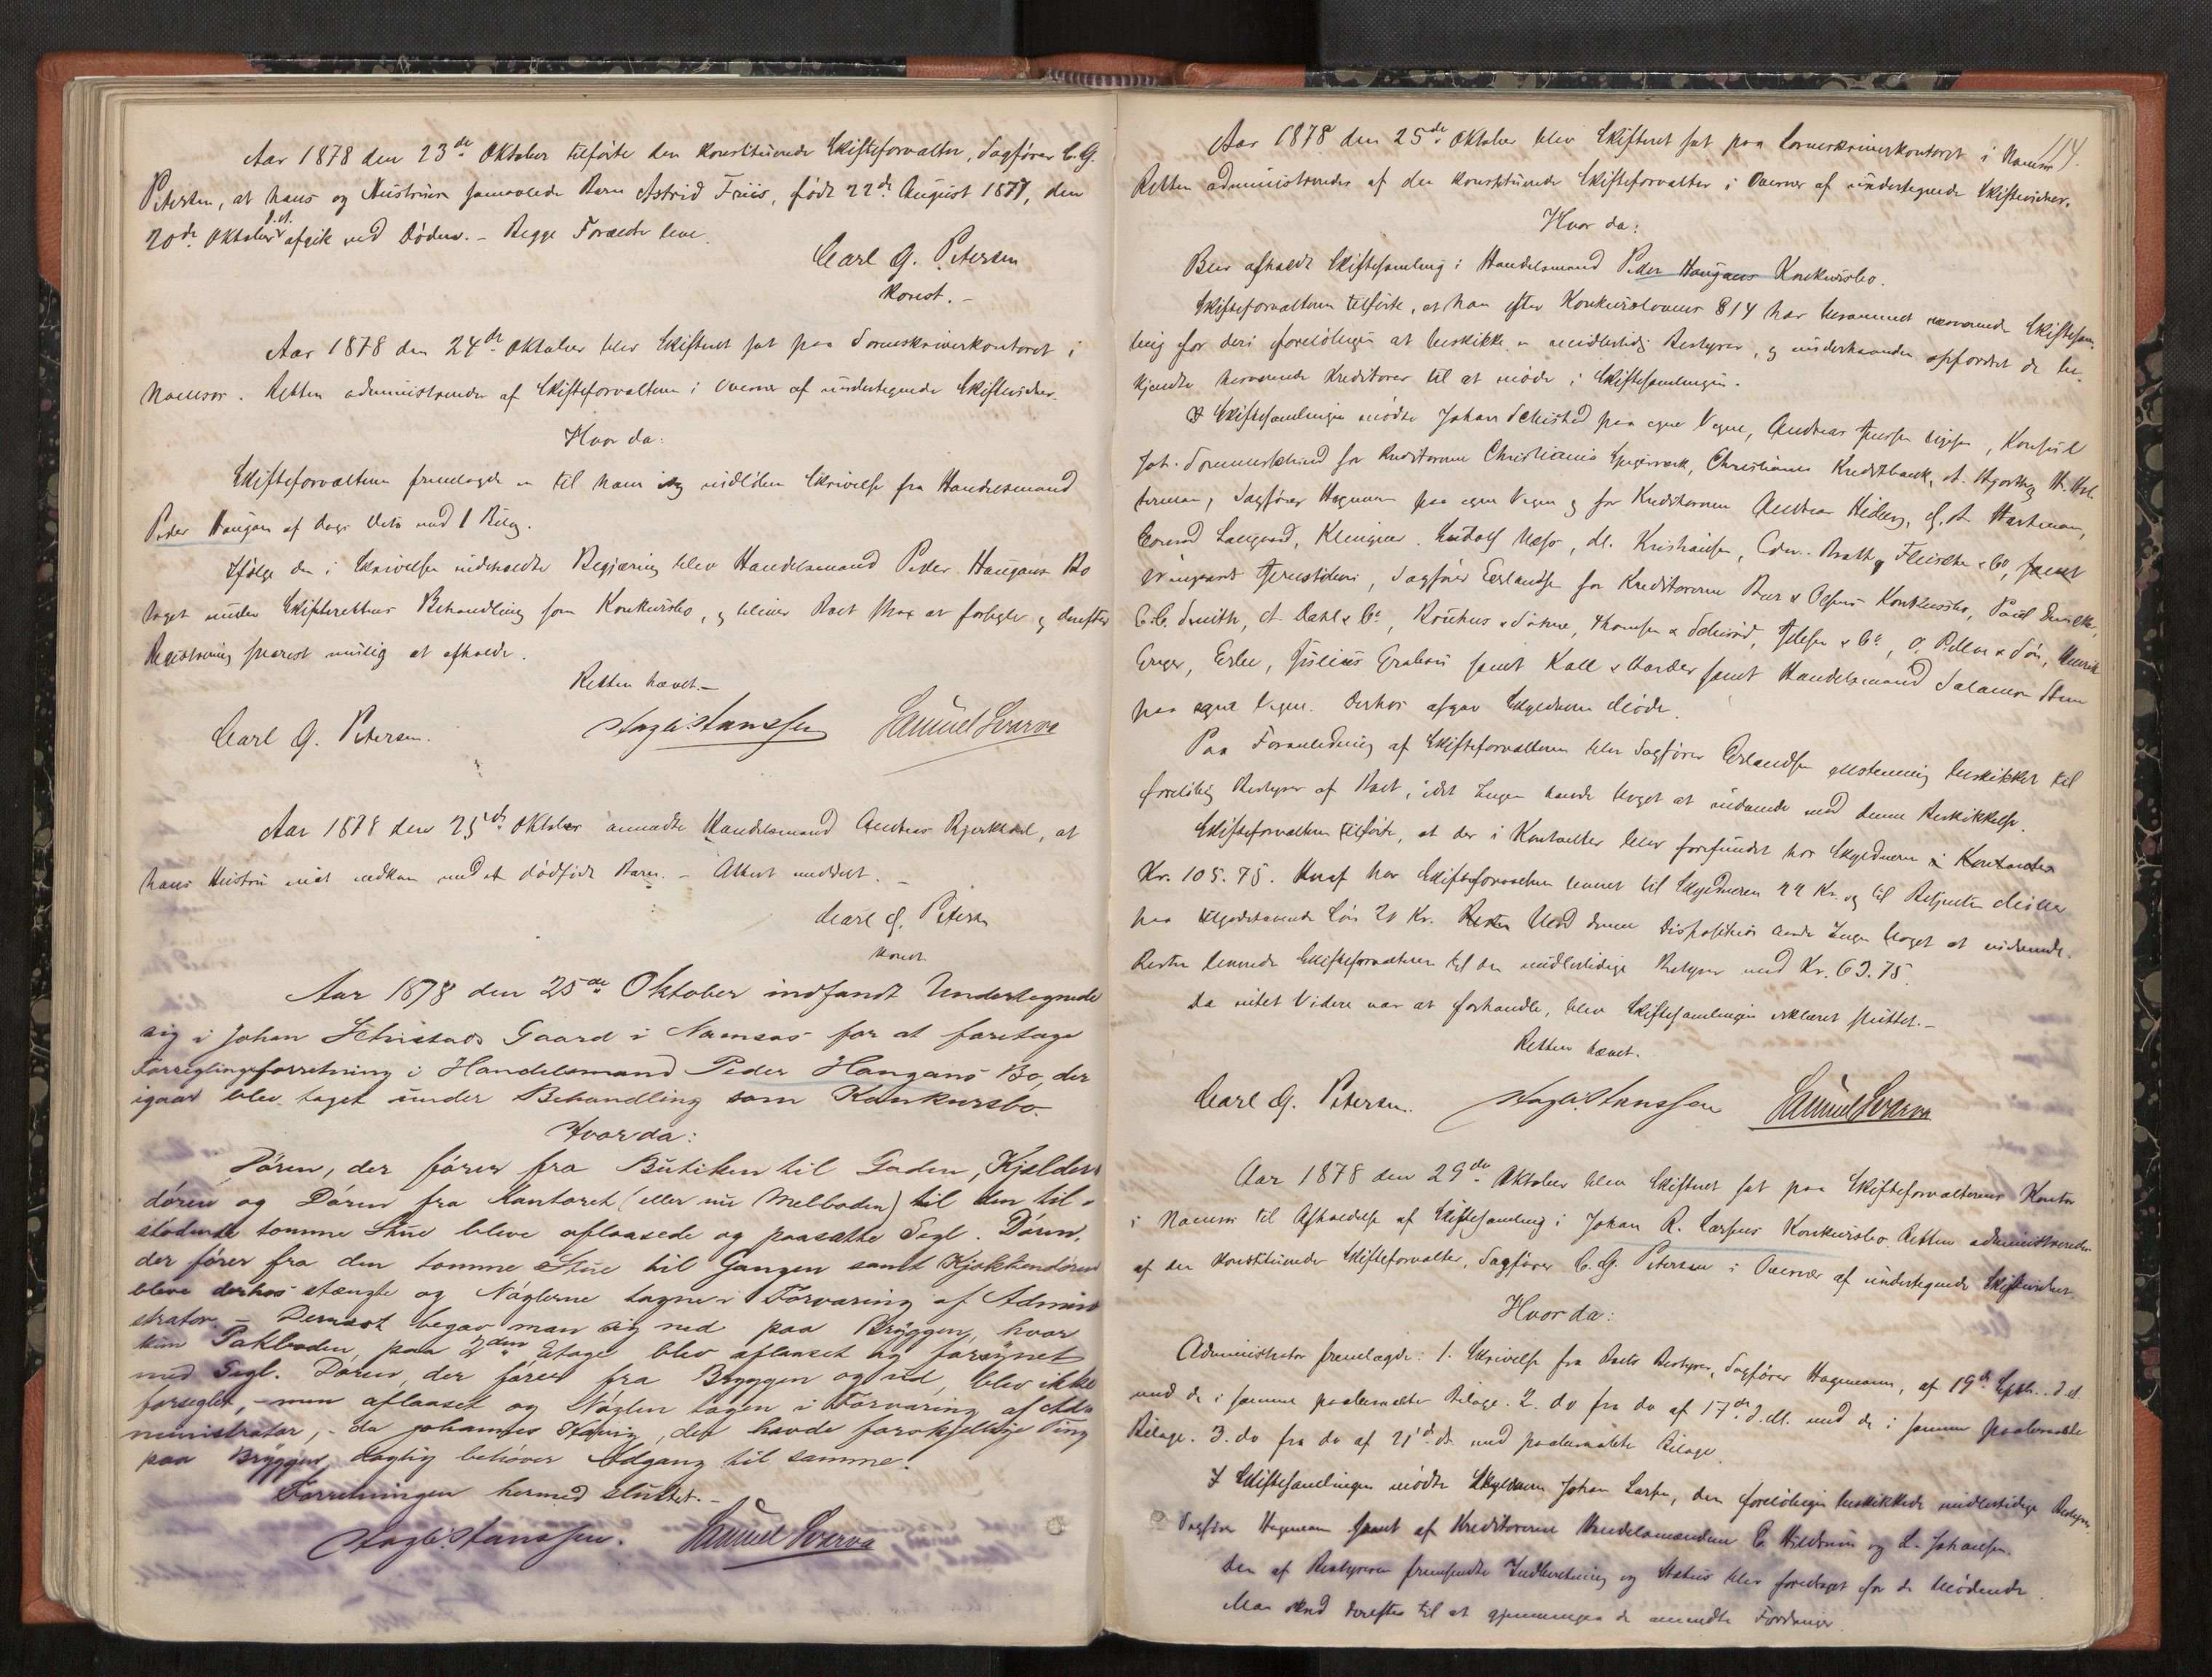 Aar 1878 den 23de Oktober tilførte den konstituerede Skifteforvalter, Sagfører C. G.
Petersen, at hans og Hustrues samavlede Barn Astrid Friis, født 22de August 1877, den
20de Oktober d. A. afgik ved Døden. – Begge Forældre leve.
Carl G. Petersen
konst. –
Aar 1878 den 24de Oktober blev Skifteret sat paa Sorenskriverkontoret i
Namsos. Retten administreredes af Skifteforvalteren i Overvær af undertegnede Skiftevidner.
Hvor da:
Skifteforvalteren fremlagde en til ham indløben Skrivelse fra Handelsmand
Peder Haugan af Dags Dato med 1 Bilag.
Ifølge den i Skrivelsen indeholdte Begjæring blev Handelsmand Peder Haugans Bo
taget under Skifterettens Behandling som Konkursbo, og bliver Boet strax at forsegle og derefter
Registrering snarest mulig at afholde.
Retten hævet. –
Carl G. Petersen. Hanssen Samuel Svarva
Aar 1878 den 25de Oktober anmeldte Handelsmand Andreas Bjerkhoel, at
hans Hustru inat nedkom med et dødfødt Barn. – Attest meddelt. –
Carl G. Petersen
konst.
Aar 1878 den 25de Oktober indfandt Undertegnede
sig i Johan Schistads Gaard i Namsos for at foretage
Forseglingsforretning i Handelsmand Peder Haugans Bo, der
igaar blev taget under Behandling som Konkursbo.
Hvorda:
Døren, der fører fra Butiken til Gaden, Kjælder-
døren og Døren fra Kontoret (eller nu Melboden) til den til-
stødende tomme Stue bleve aflaasede og paasatte Segl. Døren,
der fører fra den tomme Stue til Gangen samt Kjøkkendøren
bleve derhos stængte og Nøglerne tagne i Forvaring af Admini
strator – Dernæst begav man sig ned paa Bryggen, hvor
kun Pakboden, paa 2den Etage blev aflaaset og forsynet
med Segl. Døren, der fører fra Bryggen og ud, blev ikke
forseglet, – men aflaaset og Nøglen tagen i Forvaring af Ad-
ministrator, – da Johannes Havig, der havde forskjellige Ting
paa Bryggen daglig behøver Adgang til samme.
Forretningen hermed sluttet. –
Hanssen. Samuel Svarva
114.
Aar 1878 den 25de Oktober blev Skifteret sat paa Sorenskriverkontoret i Namsos
Retten administreredes af den konstituerede Skifteforvalter i Overvær af undertegnede Skiftevidner.
Hvor da:
Blev afholdt Skiftesamling i Handelsmand Peder Haugans Konkursbo.
Skifteforvalteren tilførte, at han efter Konkurslovens § 14 har berammet nærværende Skiftesam-
ling for deri foreløbigen at beskikke en midlertidig Bestyrer, og underhaanden opfordret de be-
kjendte herværende Kreditorer til at møde i Skiftesamlingen.
I Skiftesamlingen mødte Johan Schistad paa egne Vegne, Andreas Jenssen ligesaa, Konsul
Joh. Sommerschield for Kreditorerne Christiania Spigerværk, Christiania Kreditbank, A. Hjorth og H. 
terman, Sagfører Hagemann paa egne Vegne og for Kreditorerne Andreas , G. A. Hartmann,
Conrad Langaard, Klingner, Rudolf , M. Kristiansen, Bratt og Fleischer & Co, samt
 Jernstøberi, Sagfører Erlandsen for Kreditorerne Beer & Olsens Konkursbo, Poul ,
C. C. Smith, A. Dahl & Co, & Sønner, Thomsen & Schiød, Jelsen & Co, O. & Søn, Henrik
 , , Julius samt Kall & samt Handelsmand Salamon 
paa egne Vegne. Derhos afgav Skyldneren Møde.
Paa Foranledning af Skifteforvalteren blev Sagfører Erlandsen enstemmig beskikket til
foreløbig Bestyrer af Boet, idet Ingen havde Noget at indvende mod denne Beskikkelse.
Skifteforvalteren tilførte, at der i Kontanter blev forefundet hos Skyldneren i Kontanter
Kr. 105.75. Heraf har Skifteforvalteren levnet til Skyldneren 22 Kr. og til Betjenten Møller
paa tilgodehavende Løn 20 Kr. Resten Mod denne Disposition havde Ingen Noget at indvende.
Resten leverede Skifteforvalteren til den midlertidige Bestyrer med Kr. 63.75.
Da intet Videre var at forhandle, blev Skiftesamlingen erklæret sluttet. –
Retten hævet.
Carl G. Petersen. Hanssen Samuel Svarva
Aar 1878 den 29de Oktober blev Skifteret sat paa Skifteforvalterens Kontor
i Namsos til Afholdelse af Skiftesamling i Johan R. Larsens Konkursbo. Retten administreredes
af den konstituerede Skifteforvalter, Sagfører C. G. Petersen i Overvær af undertegnede Skiftevidner.
Hvor da:
Administrator fremlagde: 1. Skrivelse fra Boets Bestyrer, Sagfører Hagemann, af 19de Septb. d. A.
med de i samme paaberaabte Bilage. 2. do fra do af 17de d. M. med de i samme paaberaabte
Bilage. 3. do fra do af 21de ds med paaberaabte Bilage.
I Skiftesamlingen mødte Skyldneren Johan Larsen, den foreløbigen beskikkede midlertidige Bestyrer,
Sagfører Hagemann samt af Kreditorerne Handelsmændene C. Hildrum og L. Johansen.
Den af Bestyreren fremsendte Indberetning og Status blev foredraget for de Mødende.
Man skred derefter til at gjennemgaa de anmeldte Fordringer.